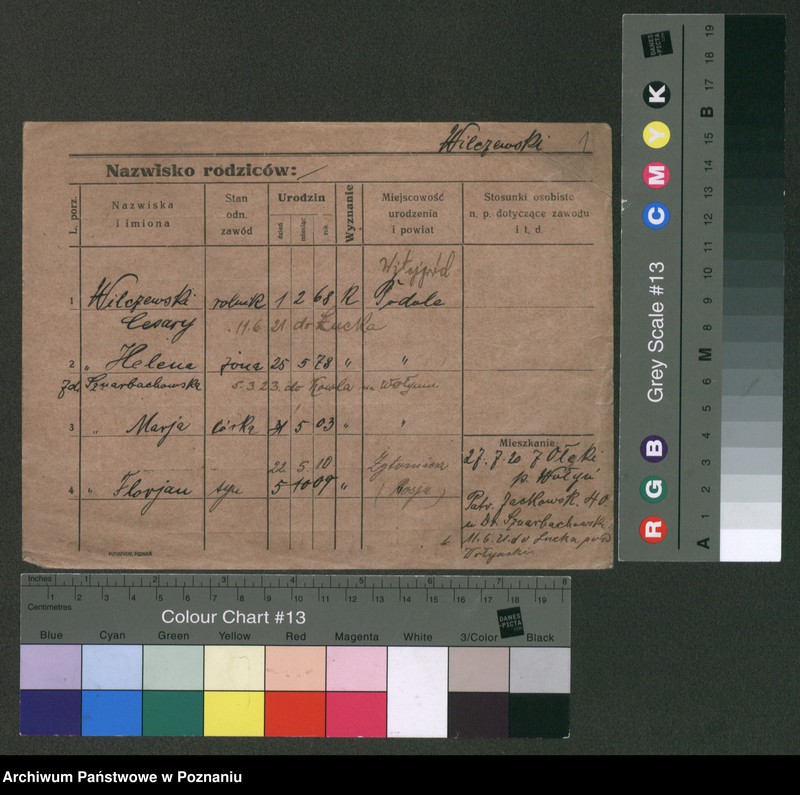 Wilczewski 1
Nazwisko rodziców:
L. porz. Nazwiska i imiona Stan odn. zawód Urodzin dzień miesiąc rok Wyznanie Miejscowość urodzenia i powiat Stosunki osobiste n. p. dotyczące zawodu i t. d.
1 Wilczewski rolnik 1 2 68 R Podole
Cesary 11.6 21 do Łucka
2 " Helena żona 25 5 78 " "
zd. Sznarbachowska 5.3 23. do Kowla na Wołyniu
3 " Marja córka 21 5 03 " "
22 5. 10 Żytomierz
4 " Florjan syn 5 10 09 " (Rosja)
Mieszkanie
27. 7. 20 z Ołyki
p. Wołyń
Patr. Jackowsk. 40
u Dr. Sznarbachowski
11. 6. 21 do Łucka
Wołyński
Inches 1 2 3 4 5 6 7 8
Centimetres 1 2 3 4 5 6 7 8 9 10 11 12 13 14 15 16 17 18 19
Colour Chart #13
DANES PICTA .COM
Blue Cyan Green Yellow Red Magenta White 3/Color Black
Grey Scale #13
R G B C M Y K
A 1 2 3 4 5 6 M 8 9 10 11 12 13 14 15 B 17 18 19
DANES PICTA .COM
Archiwum Państwowe w Poznaniu